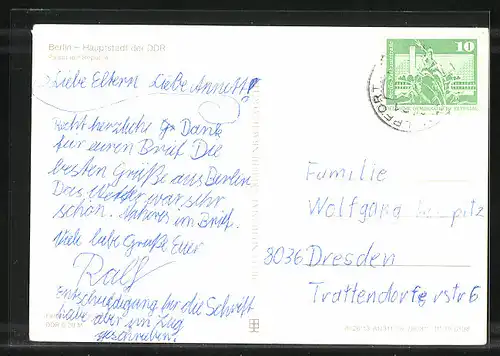 Berlin – Hauptstadt der DDR
Liebe Eltern Liebe Annett!
Recht herzliche Dank
für euren Brief Die
besten Grüße aus Berlin
Das Wetter war sehr
schön. Näheres im Brief.
Viele liebe Grüße Euer
Ralf
Entschuldigung für die Schrift
habe aber im Zug
geschrieben!
10
Familie
Wolfgang
8036 Dresden
Trattendorfer str 6